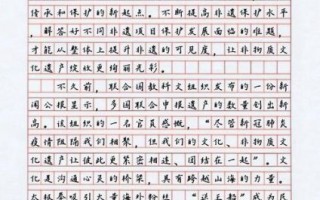 传承和保护的新起点。不断提高非遗保护水平
，解答好不同非遗项目保护发展面临的难题，
才能从整体上提升非遗的可见度，让非物质文
化遗产绽放更绚丽光彩。
不久前，联合国教科文组织发布的一份新
闻公报显示，多国联合申报遗产的数量创出新
高。该组织的一名官员感慨，“尽管新冠肺炎
疫情阻隔我们相聚，但我们的文化、非物质文
化遗产让彼此更紧密相连、团结在一起”。文
化是沟通心灵的桥梁，具有跨越山海的力量。
太极拳吸引大量海外粉丝，“送王船”成为民